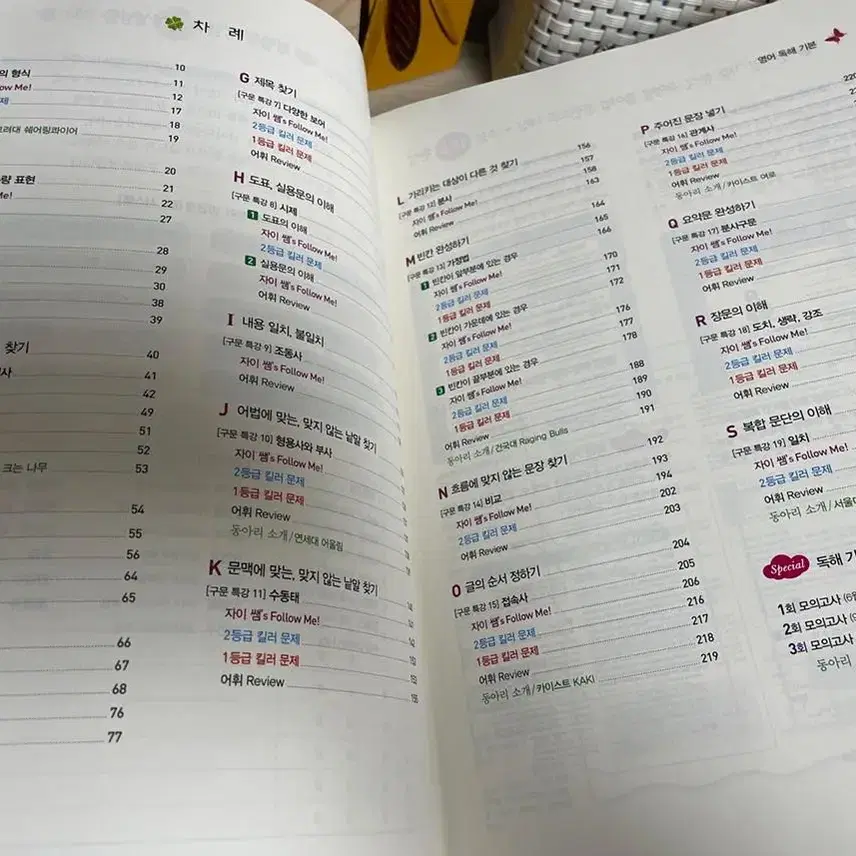 차 례
의 형식 10
Me! 11
12
17
18
쉐어링콰이어 19
20
표현 21
Me! 22
27
28
29
30
38
39
찾기 40
41
42
49
51
52
크는 나무 53
54
55
56
64
65
66
67
68
76
77
G 제목 찾기
[구문 특강 7] 다양한 보어
자이 쌤's Follow Me!
2등급 킬러 문제
1등급 킬러 문제
어휘 Review
H 도표, 실용문의 이해
[구문 특강 8] 시제
1 도표의 이해
자이 쌤's Follow Me!
2등급 킬러 문제
2 실용문의 이해
자이 쌤's Follow Me!
어휘 Review
I 내용 일치, 불일치
[구문 특강 9] 조동사
자이 쌤's Follow Me!
어휘 Review
J 어법에 맞는, 맞지 않는 낱말 찾기
[구문 특강 10] 형용사와 부사
자이 쌤's Follow Me!
2등급 킬러 문제
1등급 킬러 문제
어휘 Review
동아리 소개/연세대 어울림
K 문맥에 맞는, 맞지 않는 낱말 찾기
[구문 특강 11] 수동태
자이 쌤's Follow Me!
2등급 킬러 문제
1등급 킬러 문제
어휘 Review
영어 독해 기본
L 가리키는 대상이 다른 것 찾기 156
[구문 특강 12] 분사 157
자이 쌤's Follow Me! 158
어휘 Review 163
M 빈칸 완성하기 164
[구문 특강 13] 가정법 165
1 빈칸이 앞부분에 있는 경우 166
자이 쌤's Follow Me!
2등급 킬러 문제 170
1등급 킬러 문제 171
2 빈칸이 가운데에 있는 경우 172
자이 쌤's Follow Me! 176
2등급 킬러 문제 177
1등급 킬러 문제 178
3 빈칸이 끝부분에 있는 경우
자이 쌤's Follow Me! 188
2등급 킬러 문제 189
1등급 킬러 문제 190
어휘 Review 191
동아리 소개/건국대 Raging Bulls
N 흐름에 맞지 않는 문장 찾기 192
[구문 특강 14] 비교 193
자이 쌤's Follow Me! 194
2등급 킬러 문제 202
어휘 Review 203
O 글의 순서 정하기 204
[구문 특강 15] 접속사 205
자이 쌤's Follow Me! 206
2등급 킬러 문제 216
1등급 킬러 문제 217
어휘 Review 218
동아리 소개/카이스트 KAKI 219
P 주어진 문장 넣기 220
[구문 특강 16] 관계사
자이 쌤's Follow Me!
2등급 킬러 문제
1등급 킬러 문제
어휘 Review
동아리 소개/카이스트 여로
Q 요약문 완성하기
[구문 특강 17] 분사구문
자이 쌤's Follow Me!
2등급 킬러 문제
1등급 킬러 문제
어휘 Review
R 장문의 이해
[구문 특강 18] 도치, 생략, 강조
자이 쌤's Follow Me!
2등급 킬러 문제
1등급 킬러 문제
어휘 Review
S 복합 문단의 이해
[구문 특강 19] 일치
자이 쌤's Follow Me!
2등급 킬러 문제
어휘 Review
동아리 소개/서울
Special 독해
1회 모의고사
2회 모의고사
3회 모의고사
동아리